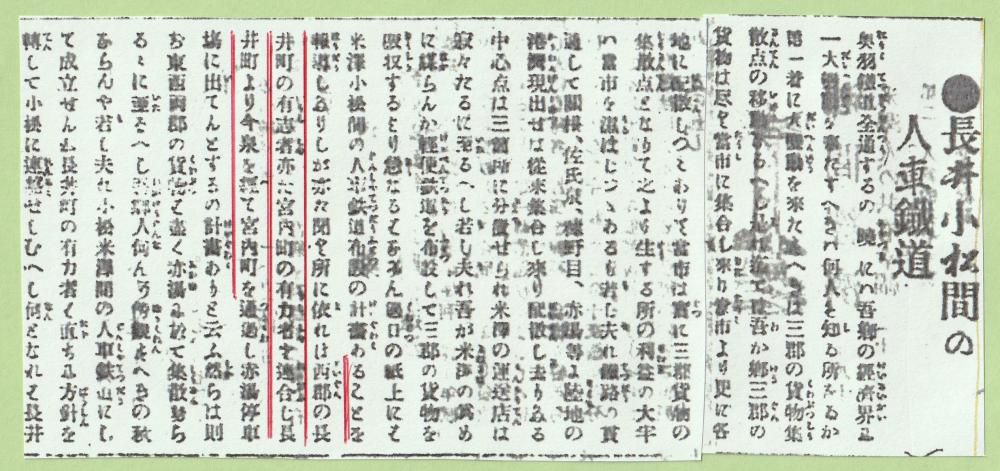 ●長井小松間の
人車鐵道
奥羽鐵道全通するの曉には吾郷の經濟界に
一大を來たすへきは何人も知る所なるか
第一着に大變動を來た へきは三郡の貨物集
散点の移動 吾か郷三郡の
貨物は尽く當市に集合し來り當市より更に各
地に配散しつゝありて當市は實に三郡貨物の
集散点となりて之より生する所の利益の大半
は當市を 若し夫れ鐵路の貫
通して關根、佐氏泉、糠野目、赤湯等 陸地の
港灣現出せは從來集合し來り配散し去りたる
中心点は三 所に分置せられ米澤の運送店は
寂々たるに至るへし若し夫れ吾が米澤の爲め
に謀らんか輕便鉄道を布設して三郡の貨物を
吸収するより急なるとあるなん過日の紙上にも
米澤小松間の人車鉄道布設の計畫あることを
報導しありしが亦た聞く所に依れは西郡の長
井町の有志者亦た宮内町の有力者と連合し長
井町より今泉を經て宮内町を通過し赤湯停車
塲に出てんとするの計畫ありと云ふ然らは則
ち東西両郡の貨物を盡く赤湯に於て集散せら
るゝに至るへし 郡人何んそ傍観すへきの秋
ならんや若し夫れ小松米澤間の人車鉄道にし
て成立せんか長井町の有力者も直ちに方針を
轉して小松に連絡せしむへし何となれは長井